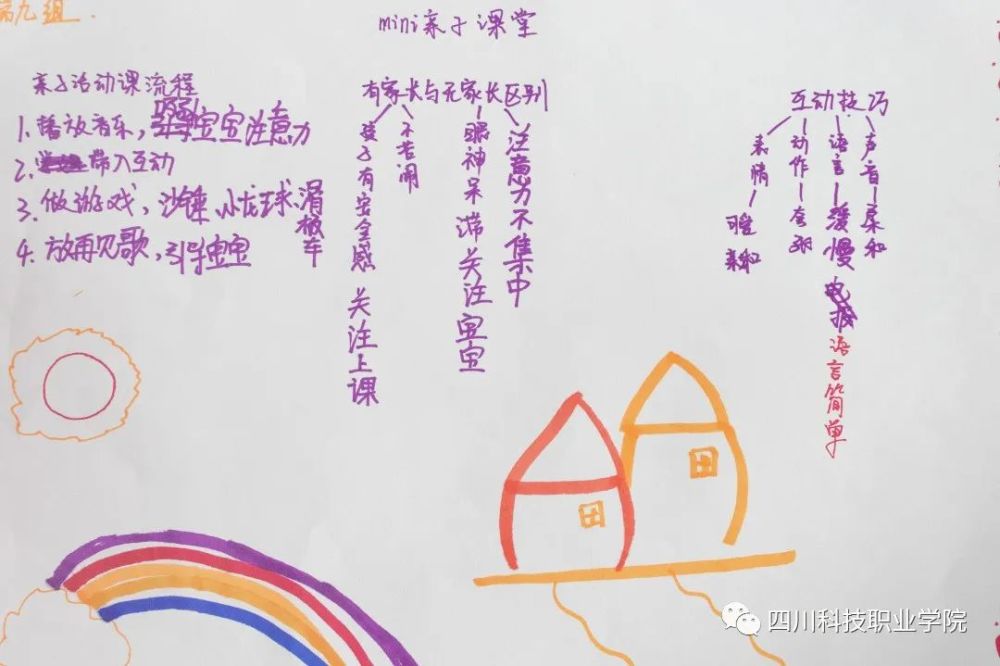 第九组
mini亲子课堂
亲子活动课流程
1.播放音乐，吸引宝宝注意力
2.带入互动
3.做游戏，沙锤、小龙球、滑板车
4.放再见歌，引导宝宝
有家长与无家长区别
孩子有安全感 关注上课
不苦闹
眼神呆滞 关注宝宝
注意力不集中
互动技巧
表情—
亲和
动作—夸张
语言—缓慢
语言简单
声音—柔和
四川科技职业学院